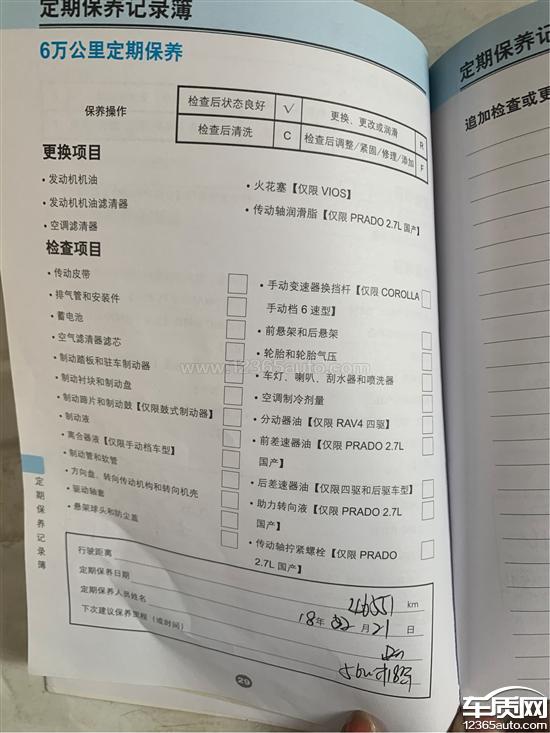 定期保养记录簿
定期保养记
6万公里定期保养
追加检查或更
保养操作
检查后状态良好 √ 更换、更改或润滑 R
检查后清洗 C 检查后调整/紧固/修理/添加 F
更换项目
• 发动机机油
• 发动机机油滤清器
• 空调滤清器
• 火花塞【仅限 VIOS】
• 传动轴润滑脂【仅限 PRADO 2.7L 国产】
检查项目
• 传动皮带
• 排气管和安装件
• 蓄电池
• 空气滤清器滤芯
• 制动踏板和驻车制动器
• 制动衬块和制动盘
• 制动蹄片和制动鼓【仅限鼓式制动器】
• 制动液
• 离合器液【仅限手动档车型】
• 制动管和软管
• 方向盘、转向传动机构和转向机壳
• 驱动轴套
• 悬架球头和防尘盖
• 手动变速器换挡杆【仅限 COROLLA
手动档 6 速型】
• 前悬架和后悬架
• 轮胎和轮胎气压
• 车灯、喇叭、刮水器和喷洗器
• 空调制冷剂量
• 分动器油【仅限 RAV4 四驱】
• 前差速器油【仅限 PRADO 2.7L
国产】
• 后差速器油【仅限四驱和后驱车型】
• 助力转向液【仅限 PRADO 2.7L
国产】
• 传动轴拧紧螺栓【仅限 PRADO
2.7L 国产】
定期保养记录簿
行驶距离 46551 km
定期保养日期 18年 月21日
定期保养人员姓名
下次建议保养里程（或时间）
29
www.12365auto.com
车质网
12365auto.com